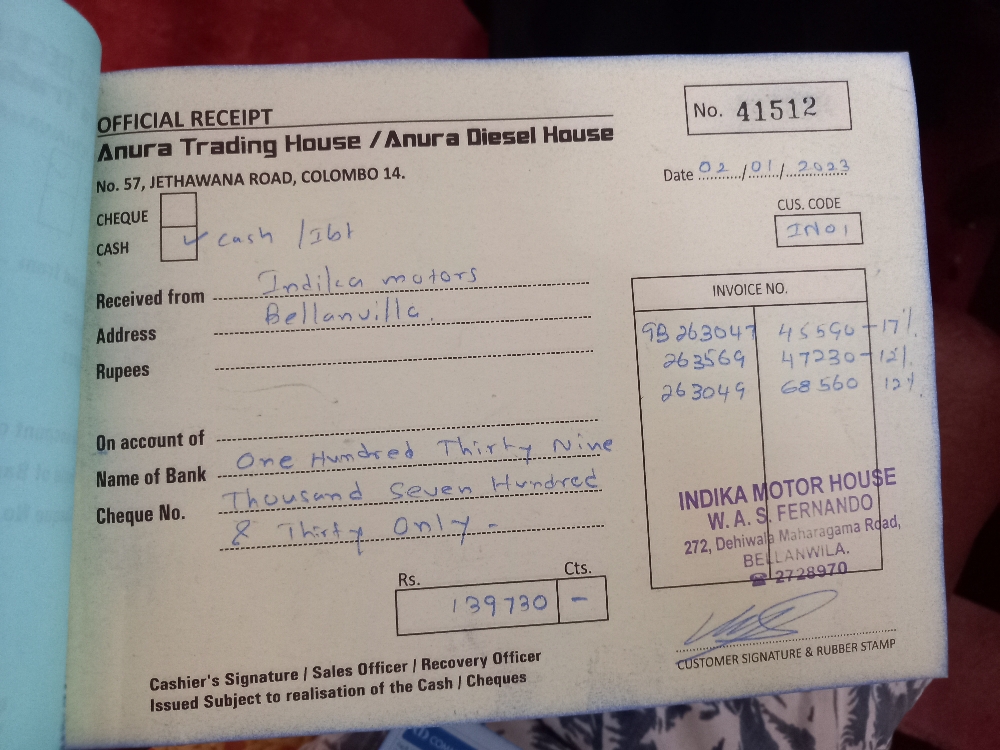 OFFICIAL RECEIPT
Anura Trading House / Anura Diesel House
No. 57, JETHAWANA ROAD, COLOMBO 14.
No. 41512
Date 02/01/2023
CUS. CODE
IN01
CHEQUE
CASH ✓ cash / Ibt
Received from Indika motors
Address Bellanvilla.
Rupees
On account of
Name of Bank One Hundred Thirty Nine
Cheque No. Thousand Seven Hundred
& Thirty Only -
INVOICE NO.
GB 263047 45590 - 17%
263569 47230 - 12%
263049 68560 12%
INDIKA MOTOR HOUSE
W. A. S. FERNANDO
272, Dehiwala Maharagama Road,
BELLANWILA.
☎ 2728970
Rs. Cts.
139730 -
CUSTOMER SIGNATURE & RUBBER STAMP
Cashier's Signature / Sales Officer / Recovery Officer
Issued Subject to realisation of the Cash / Cheques